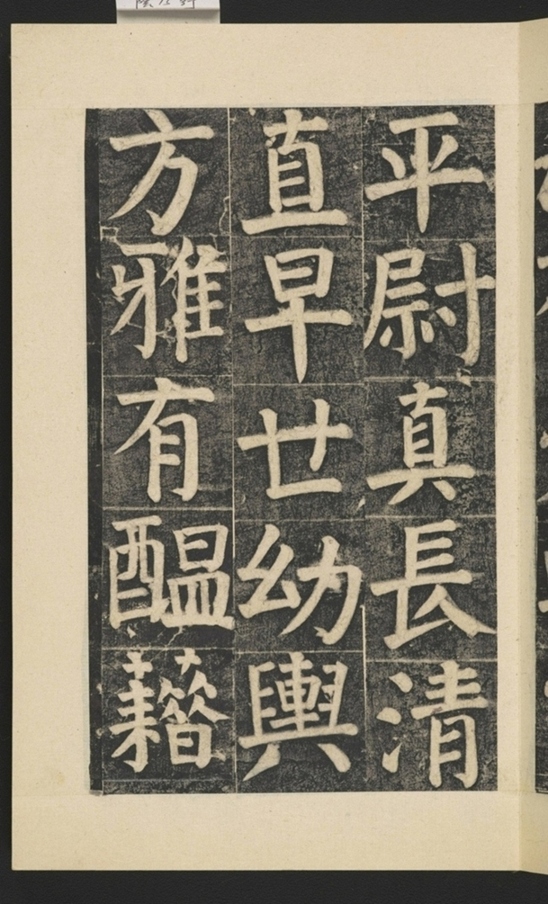 平尉真長清
直早世幼輿
方雅有醖藉